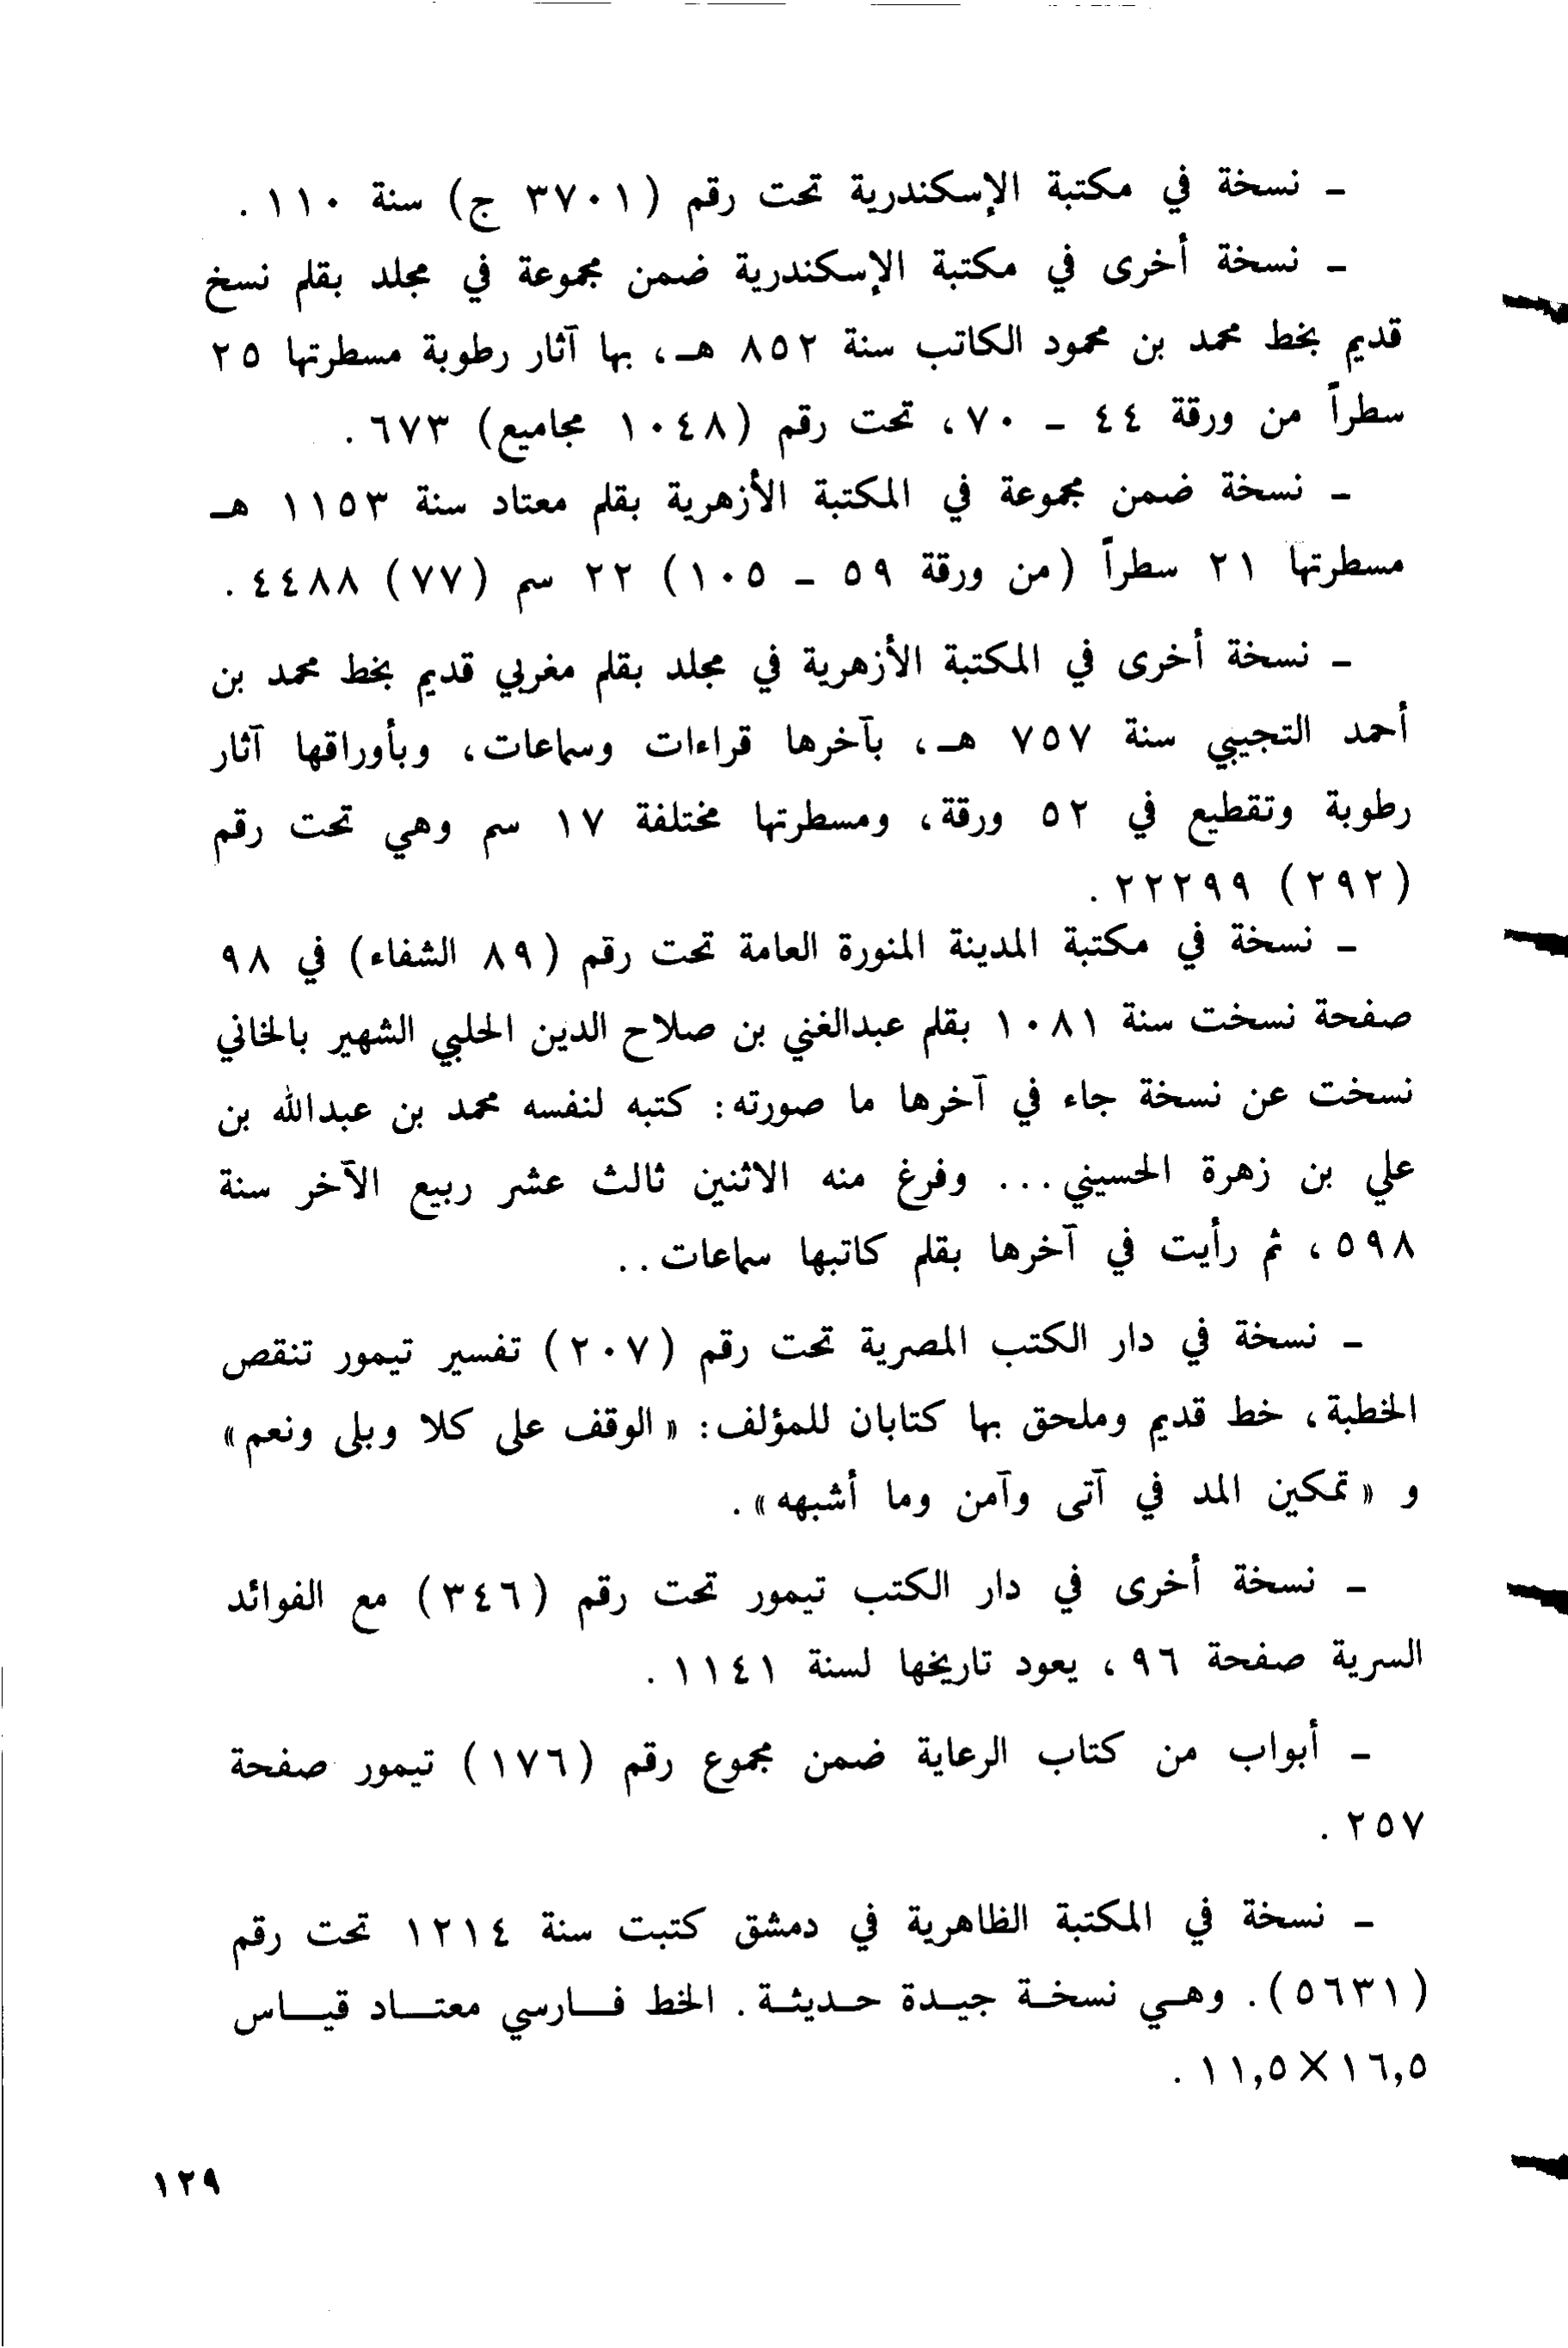 ـ نسخة في مكتبة الإسكندرية تحت رقم (٣٧٠١ ج) سنة ١١٠ .
ـ نسخة أخرى في مكتبة الإسكندرية ضمن مجموعة في مجلد بقلم نسخ
قديم بخط محمد بن محمود الكاتب سنة ٨٥٢ هـ، بها آثار رطوبة مسطرتها ٢٥
سطراً من ورقة ٤٤ ـ ٧٠، تحت رقم (١٠٤٨ مجاميع) ٦٧٣ .
ـ نسخة ضمن مجموعة في المكتبة الأزهرية بقلم معتاد سنة ١١٥٣ هـ
مسطرتها ٢١ سطراً (من ورقة ٥٩ ـ ١٠٥) ٢٢ سم (٧٧) ٤٤٨٨ .
ـ نسخة أخرى في المكتبة الأزهرية في مجلد بقلم مغربي قديم بخط محمد بن
أحمد التجيبي سنة ٧٥٧ هـ، بآخرها قراءات وسماعات، وبأوراقها آثار
رطوبة وتقطيع في ٥٢ ورقة، ومسطرتها مختلفة ١٧ سم وهي تحت رقم
(٢٩٢) ٢٢٢٩٩ .
ـ نسخة في مكتبة المدينة المنورة العامة تحت رقم (٨٩ الشفاء) في ٩٨
صفحة نسخت سنة ١٠٨١ بقلم عبدالغني بن صلاح الدين الحلبي الشهير بالخاني
نسخت عن نسخة جاء في آخرها ما صورته: كتبه لنفسه محمد بن عبدالله بن
علي بن زهرة الحسيني... وفرغ منه الاثنين ثالث عشر ربيع الآخر سنة
٥٩٨، ثم رأيت في آخرها بقلم كاتبها سماعات. .
ـ نسخة في دار الكتب المصرية تحت رقم (٢٠٧) تفسير تيمور تنقص
الخطبة، خط قديم وملحق بها كتابان للمؤلف: «الوقف على كلا وبلى ونعم»
و «تمكين المد في آتى وآمن وما أشبهه» .
ـ نسخة أخرى في دار الكتب تيمور تحت رقم (٣٤٦) مع الفوائد
السرية صفحة ٩٦، يعود تاريخها لسنة ١١٤١ .
ـ أبواب من كتاب الرعاية ضمن مجموع رقم (١٧٦) تيمور صفحة
٢٥٧ .
ـ نسخة في المكتبة الظاهرية في دمشق كتبت سنة ١٢١٤ تحت رقم
(٥٦٣١). وهـي نسخـة جيـدة حـديثـة. الخط فـارسي معتـاد قيـاس
١٦,٥×١١,٥ .
١٢٩